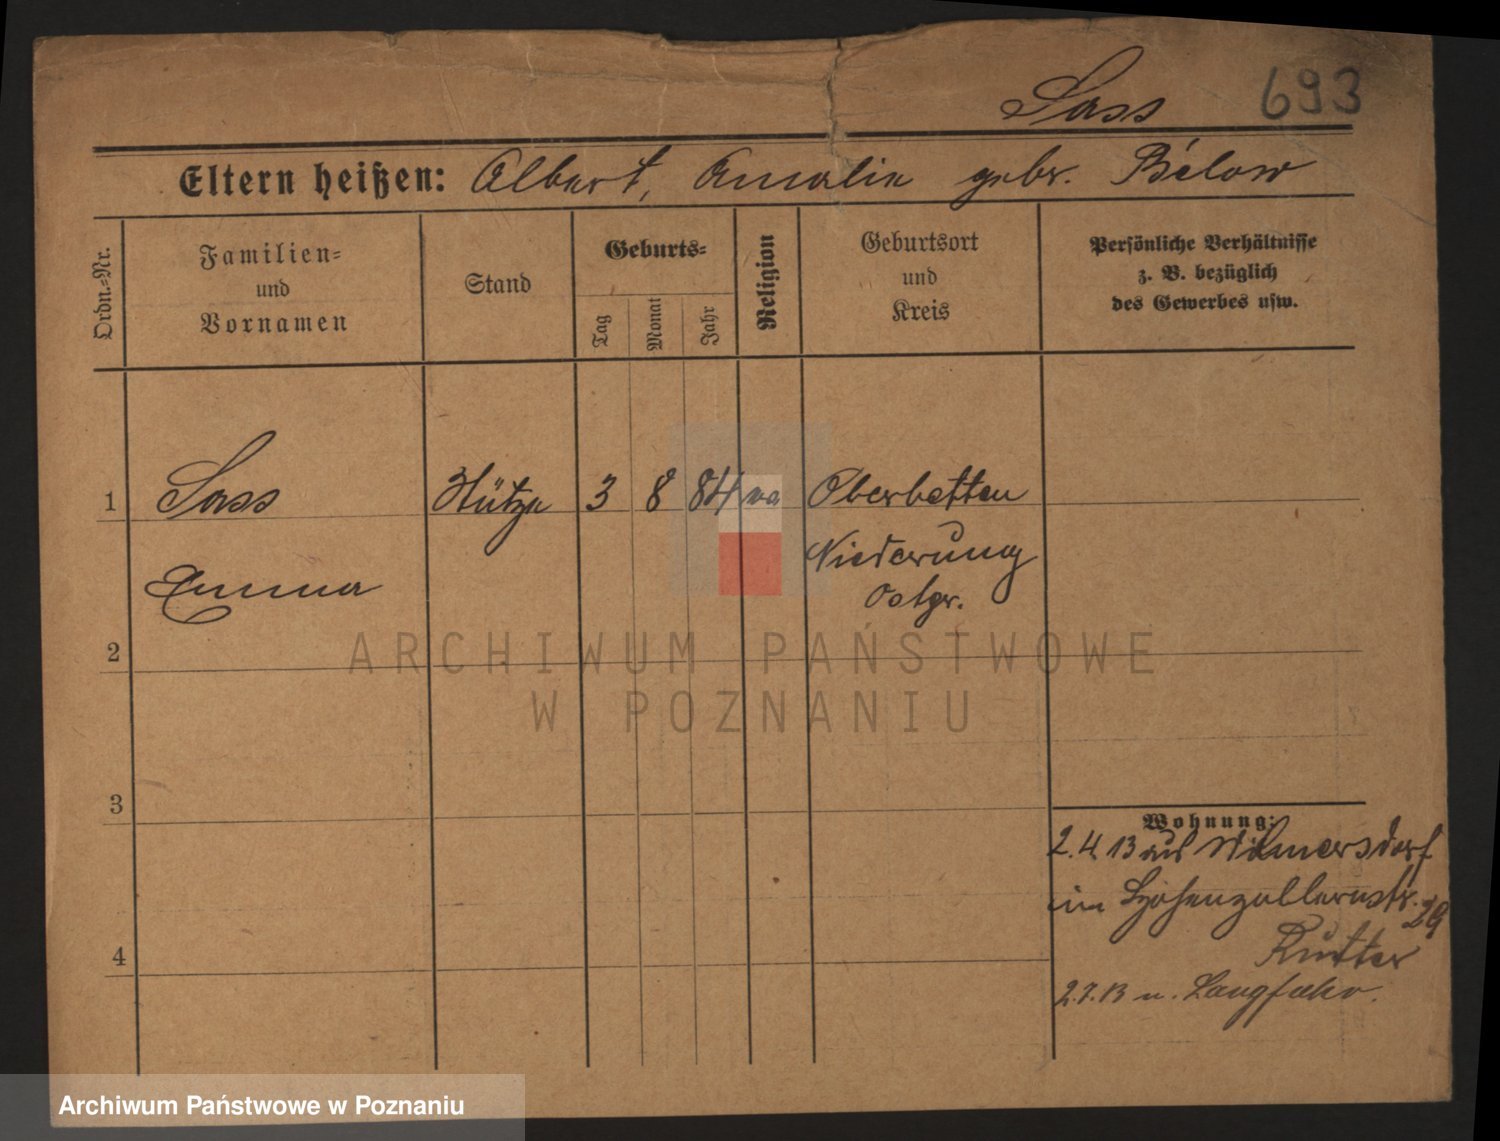 Sass 693
Eltern heißen: Albert, Amalie gebr. Bélow
Ordn.=Nr.
Familien=
und
Vornamen
Stand
Geburts=
Tag
Monat
Jahr
Religion
Geburtsort
und
Kreis
Persönliche Verhältnisse
z. B. bezüglich
des Gewerbes usw.
1 Sass Stütze 3 8 84 Oberbetten
Niederung
Ostpr.
Emma
2
3
4
Wohnung:
2.4.13 aus Wilmersdorf
im Hohenzollernstr. 29
2.7.13 n. Langfuhr.
ARCHIWUM PAŃSTWOWE
W POZNANIU
Archiwum Państwowe w Poznaniu